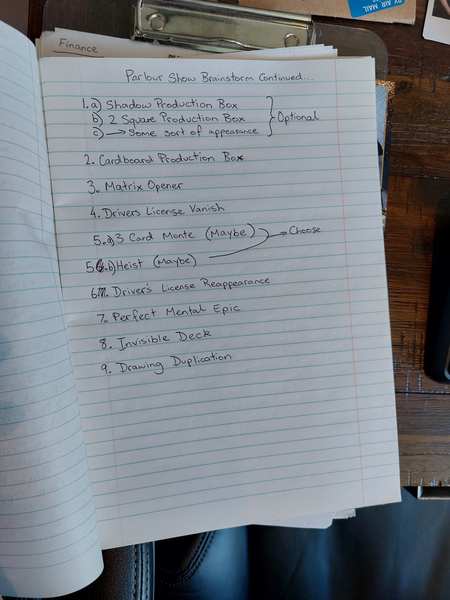 BY AIR MAIL
Finance
Parlour Show Brainstorm Continued...
1. a) Shadow Production Box
b) 2 Square Production Box
c) → Some sort of appearance
Optional
2. Cardboard Production Box
3. Matrix Opener
4. Drivers License Vanish
5. a) 3 Card Monte (Maybe)
→ Choose
5. b) Heist (Maybe)
6. Driver's License Reappearance
7. Perfect Mental Epic
8. Invisible Deck
9. Drawing Duplication